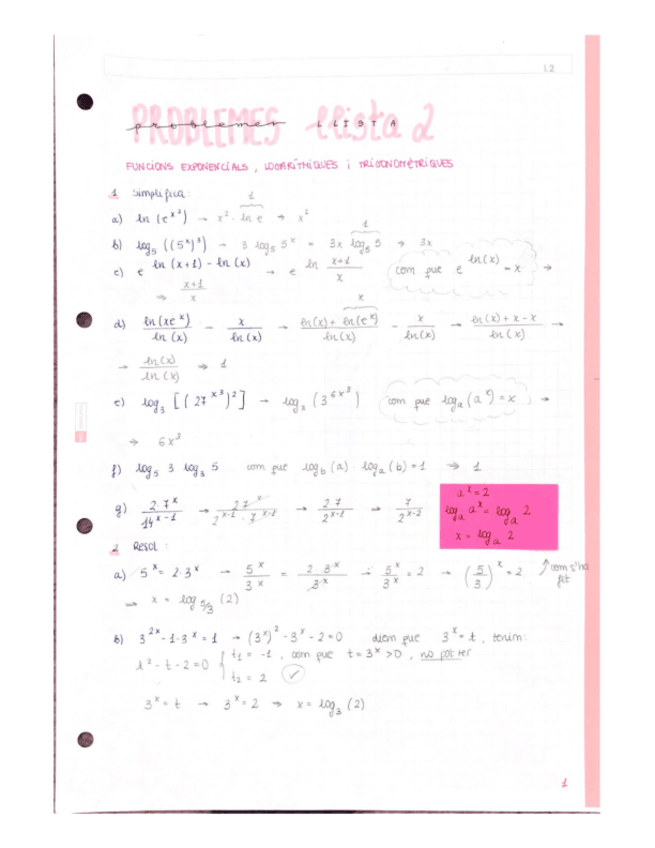 L2
PROBLEMES Llista 2
problemes LLISTA
FUNCIONS EXPONENCIALS, LOGARÍTMIQUES i TRIGONOMÈTRIQUES
1 Simplifica:
a) ln (e^x²) → x² · ln e → x²
1
b) log₅ ((5^x)³) → 3 log₅ 5^x = 3x log₅ 5 → 3x
1
c) e^(ln (x+1) - ln (x)) → e^(ln (x+1)/x) com que e^ln(x) = x →
⇒ (x+1)/x
x
d) ln(xe^x)/ln (x) - x/ln(x) → (ln(x) + ln(e^x))/ln(x) - x/ln(x) → (ln(x) + x - x)/ln(x) →
→ ln(x)/ln(x) → 1
e) log₃ [(27^x³)²] → log₃ (3^6x³) com que logₐ(a^x) = x →
→ 6x³
f) log₅ 3 log₃ 5 com que log_b (a) · log_a (b) = 1 → 1
g) 2·7^x/14^(x-1) → 2·7^x/(2^(x-1) · 7^(x-1)) → 2·7/2^(x-1) → 7/2^(x-2)
a^x = 2
log_a a^x = log_a 2
x = log_a 2
2 Resol:
a) 5^x = 2·3^x → 5^x/3^x = 2·3^x/3^x → 5^x/3^x = 2 → (5/3)^x = 2 com s'ha fet
→ x = log_5/3 (2)
b) 3^2x - 1·3^x = 1 → (3^x)² - 3^x - 2 = 0 diem que 3^x = t, tenim:
t² - t - 2 = 0 { t₁ = -1, com que t = 3^x > 0, no pot ser
t₂ = 2 ✓
3^x = t → 3^x = 2 → x = log₃ (2)
1